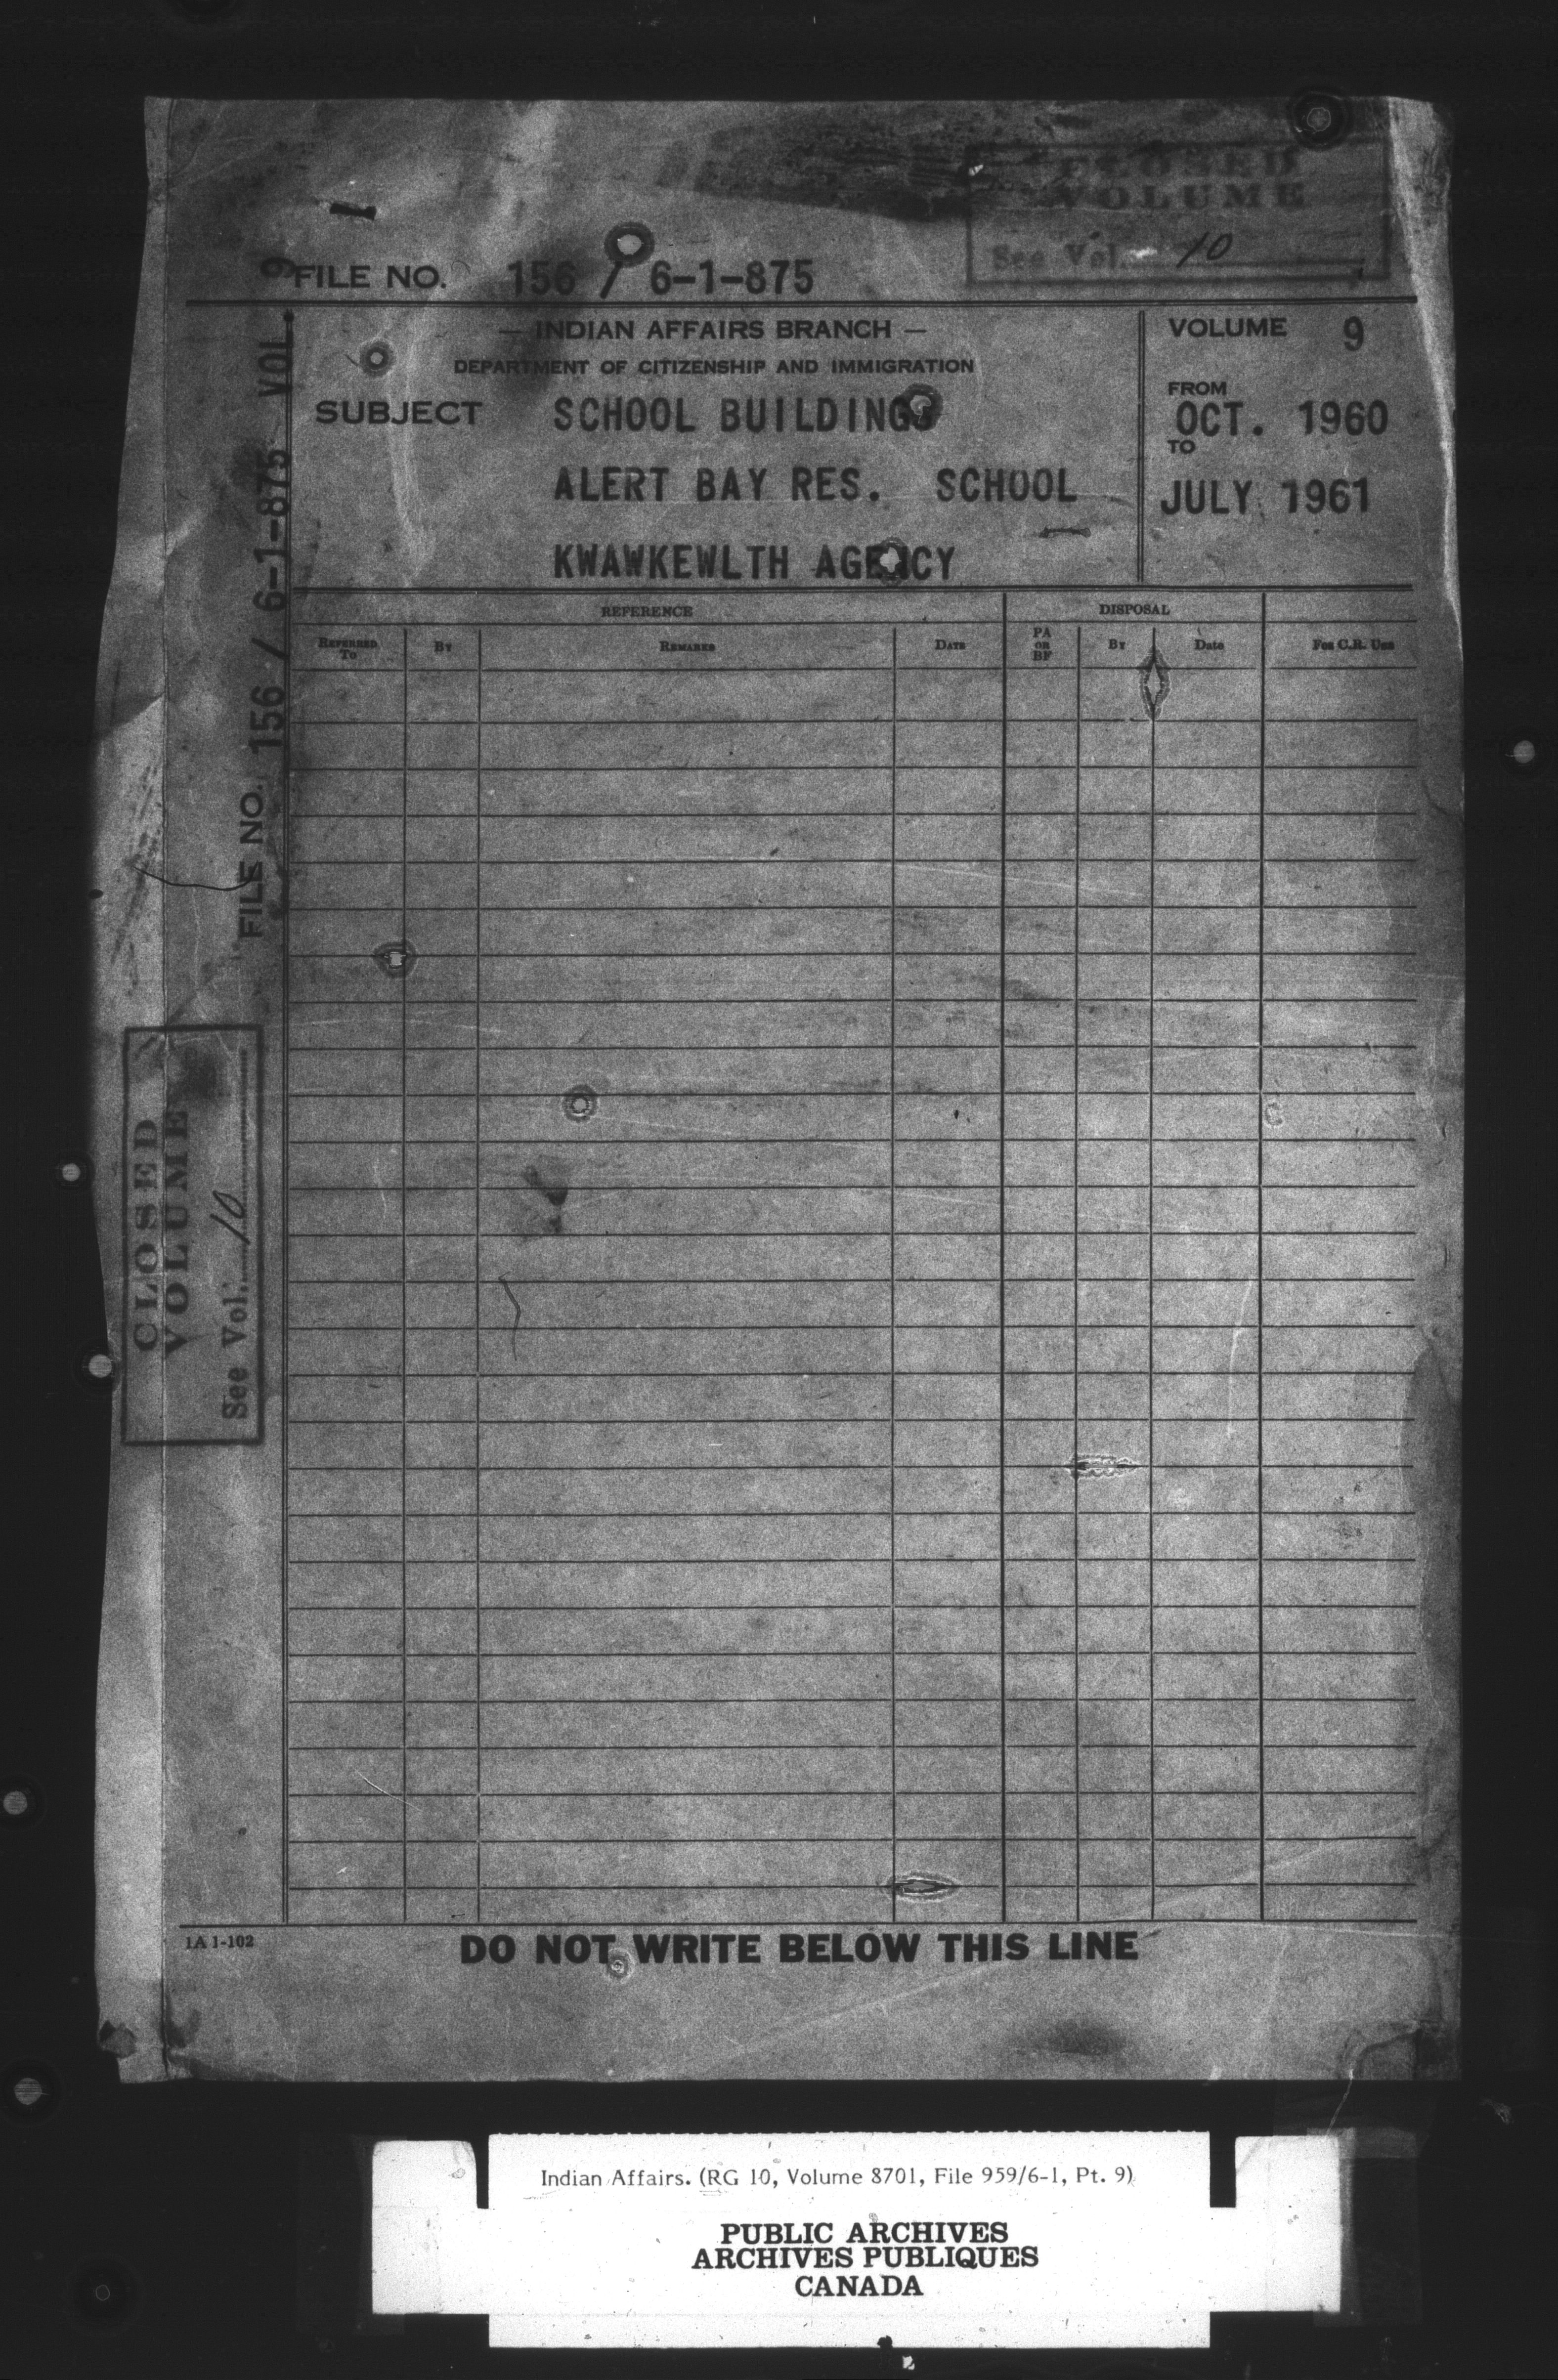 CLOSED
VOLUME
See Vol. 10
FILE NO. 156 / 6-1-875
— INDIAN AFFAIRS BRANCH —
DEPARTMENT OF CITIZENSHIP AND IMMIGRATION
SUBJECT SCHOOL BUILDINGS
ALERT BAY RES. SCHOOL
KWAWKEWLTH AGENCY
VOLUME 9
FROM
OCT. 1960
TO
JULY 1961
FILE NO. 156 / 6-1-875 VOL. 9
REFERENCE DISPOSAL
REFERRED TO BY REMARKS DATE PA OR BF BY Date FOR C.R. USE
CLOSED
VOLUME
See Vol. 10
IA 1-102
DO NOT WRITE BELOW THIS LINE
Indian Affairs. (RG 10, Volume 8701, File 959/6-1, Pt. 9)
PUBLIC ARCHIVES
ARCHIVES PUBLIQUES
CANADA